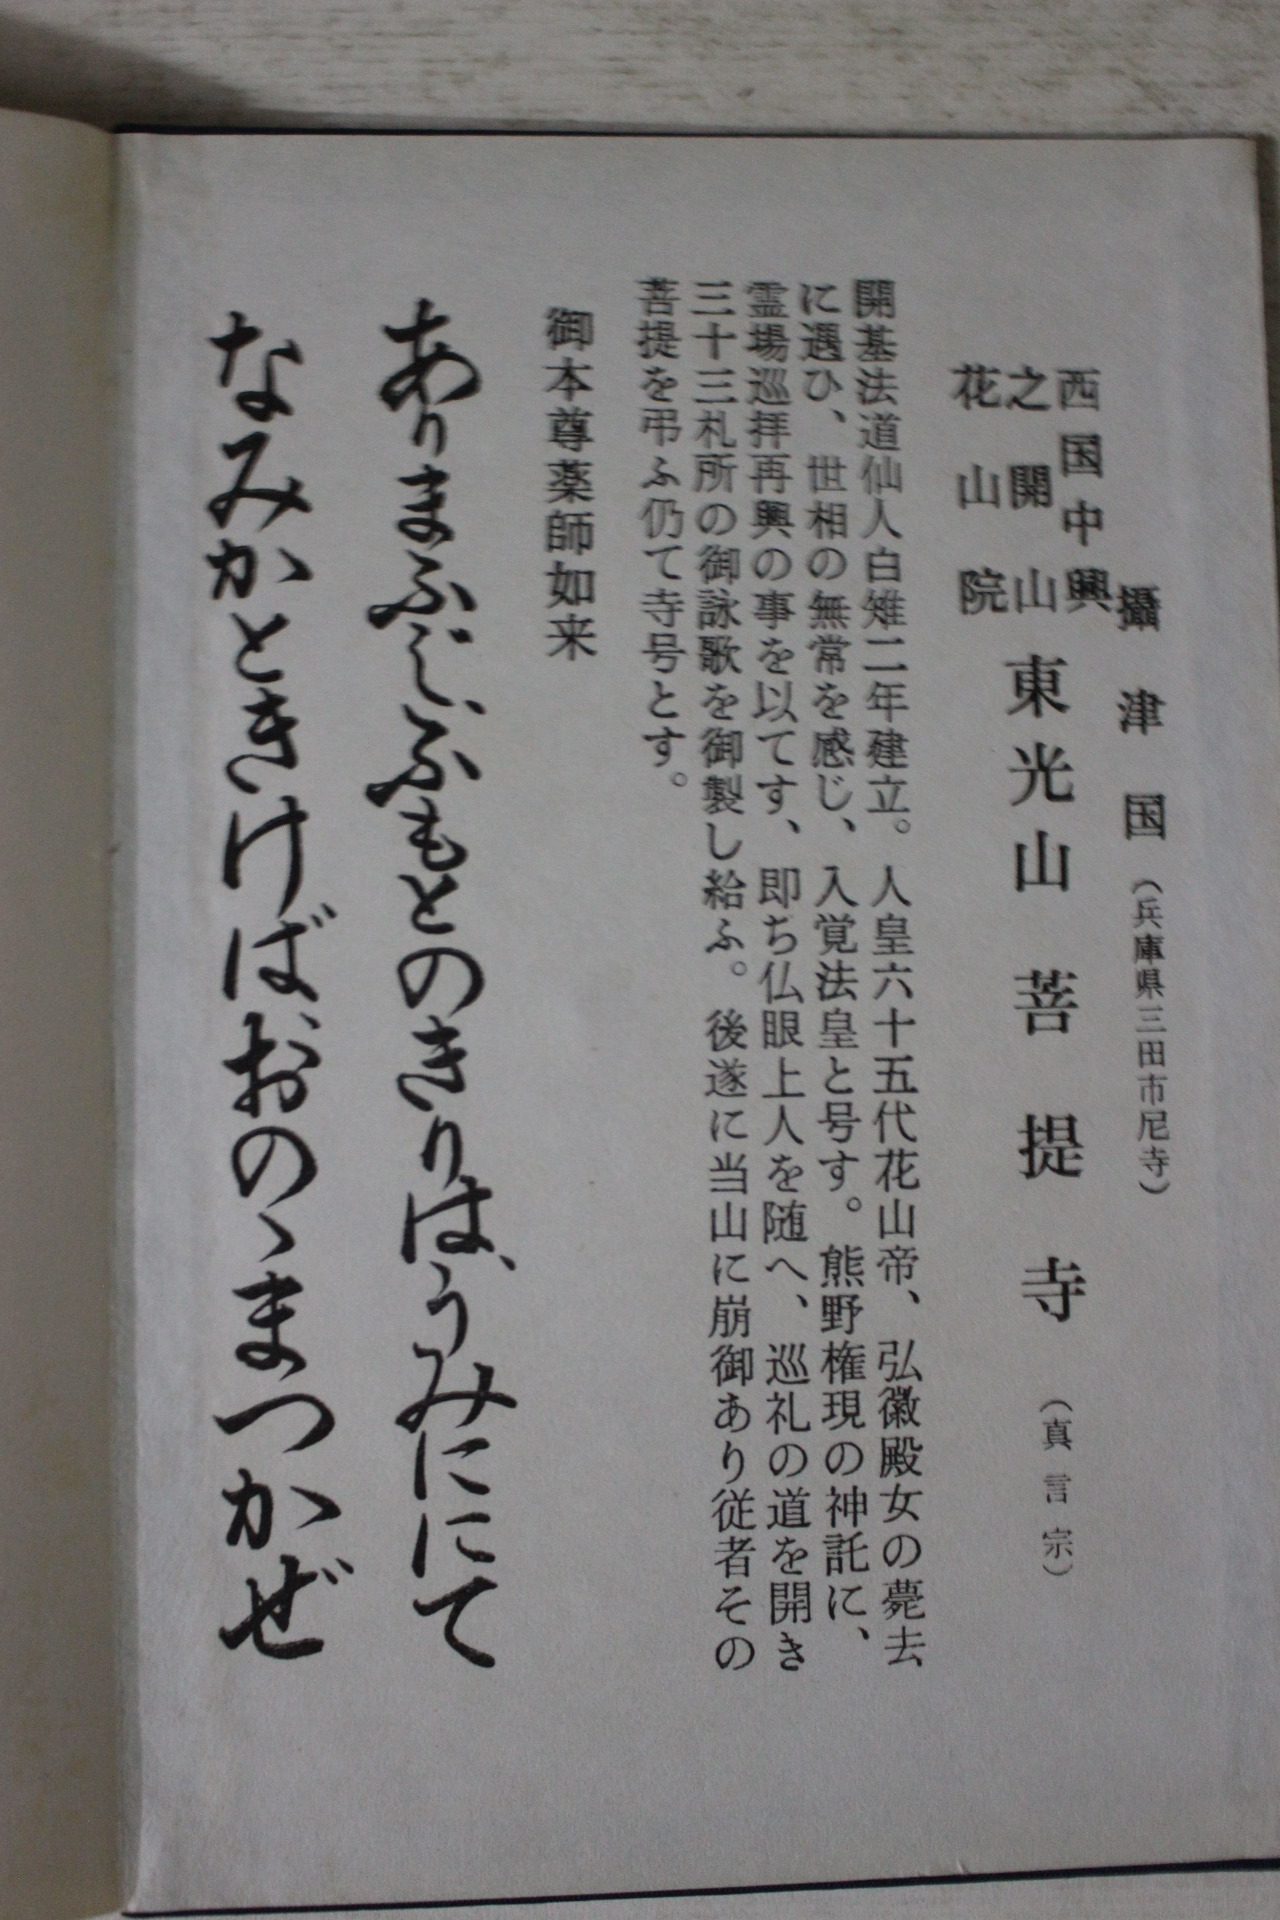 攝津国(兵庫県三田市尼寺)
西国中興
之開山
花山院
東光山菩提寺(真言宗)
開基法道仙人白雉二年建立。人皇六十五代花山帝、弘徽殿女の薨去
に遇ひ、世相の無常を感じ、入覚法皇と号す。熊野権現の神託に、
霊場巡拝再興の事を以てす、即ち仏眼上人を随へ、巡礼の道を開き
三十三札所の御詠歌を御製し給ふ。後遂に当山に崩御あり従者その
菩提を弔ふ仍て寺号とす。
御本尊薬師如来
ありまふじふもとのきりは、うみににて
なみかときけばおのゝまつかぜ